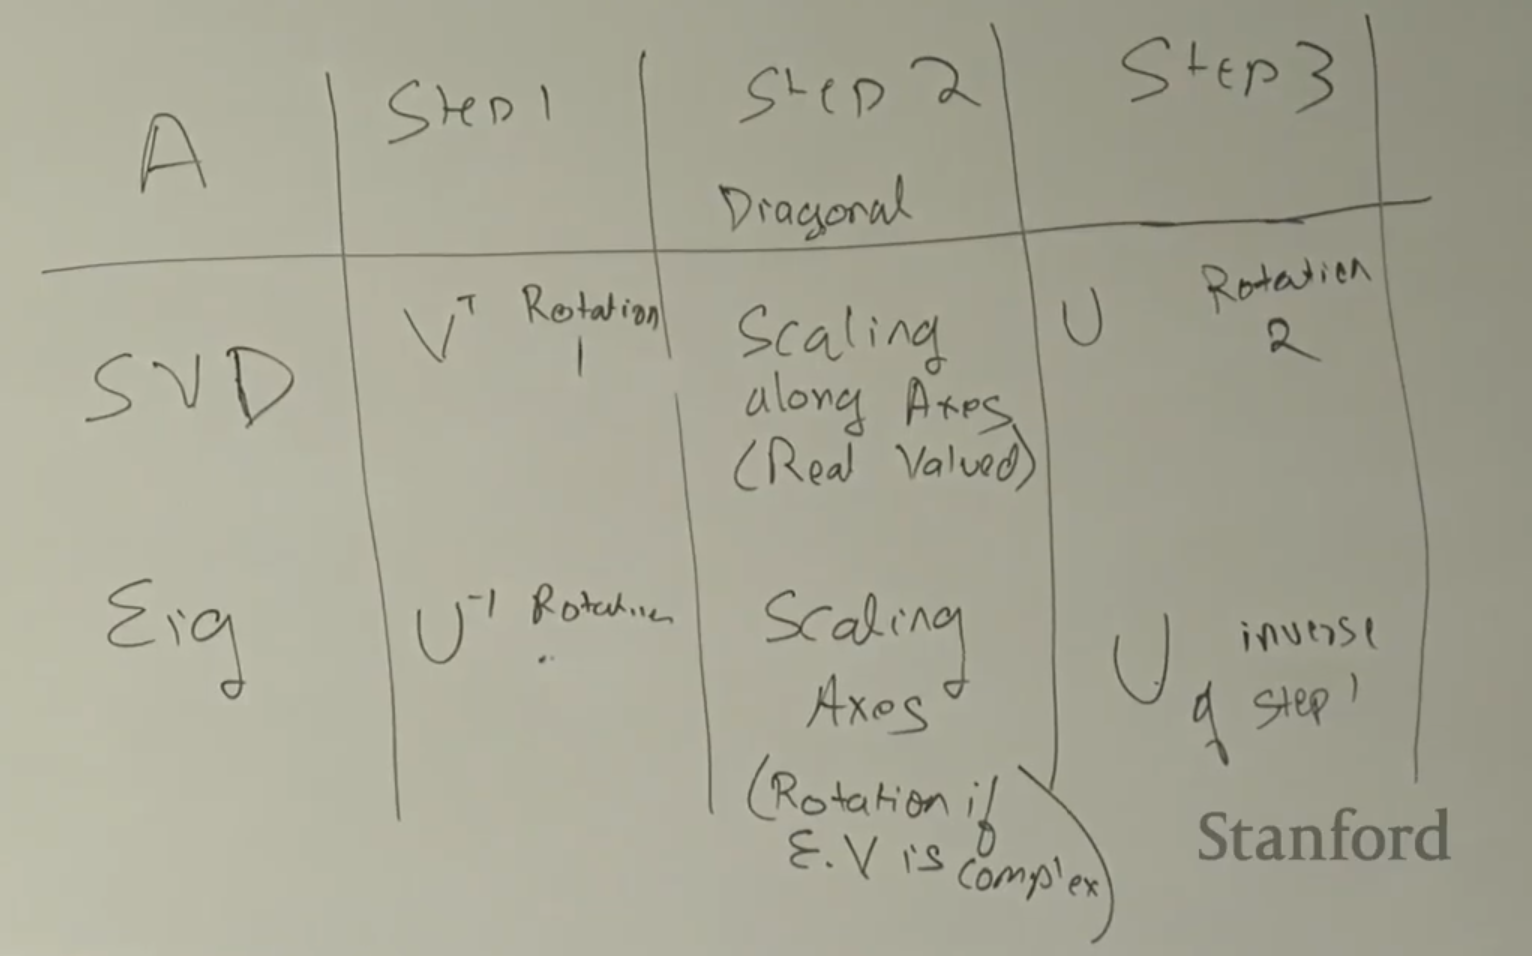 A Step 1 Step 2 Step 3
Diagonal
SVD V^T Rotation 1 Scaling along Axes (Real Valued) U Rotation 2
Eig U^-1 Rotation Scaling Axes (Rotation if E.V is complex) U inverse of step 1
Stanford